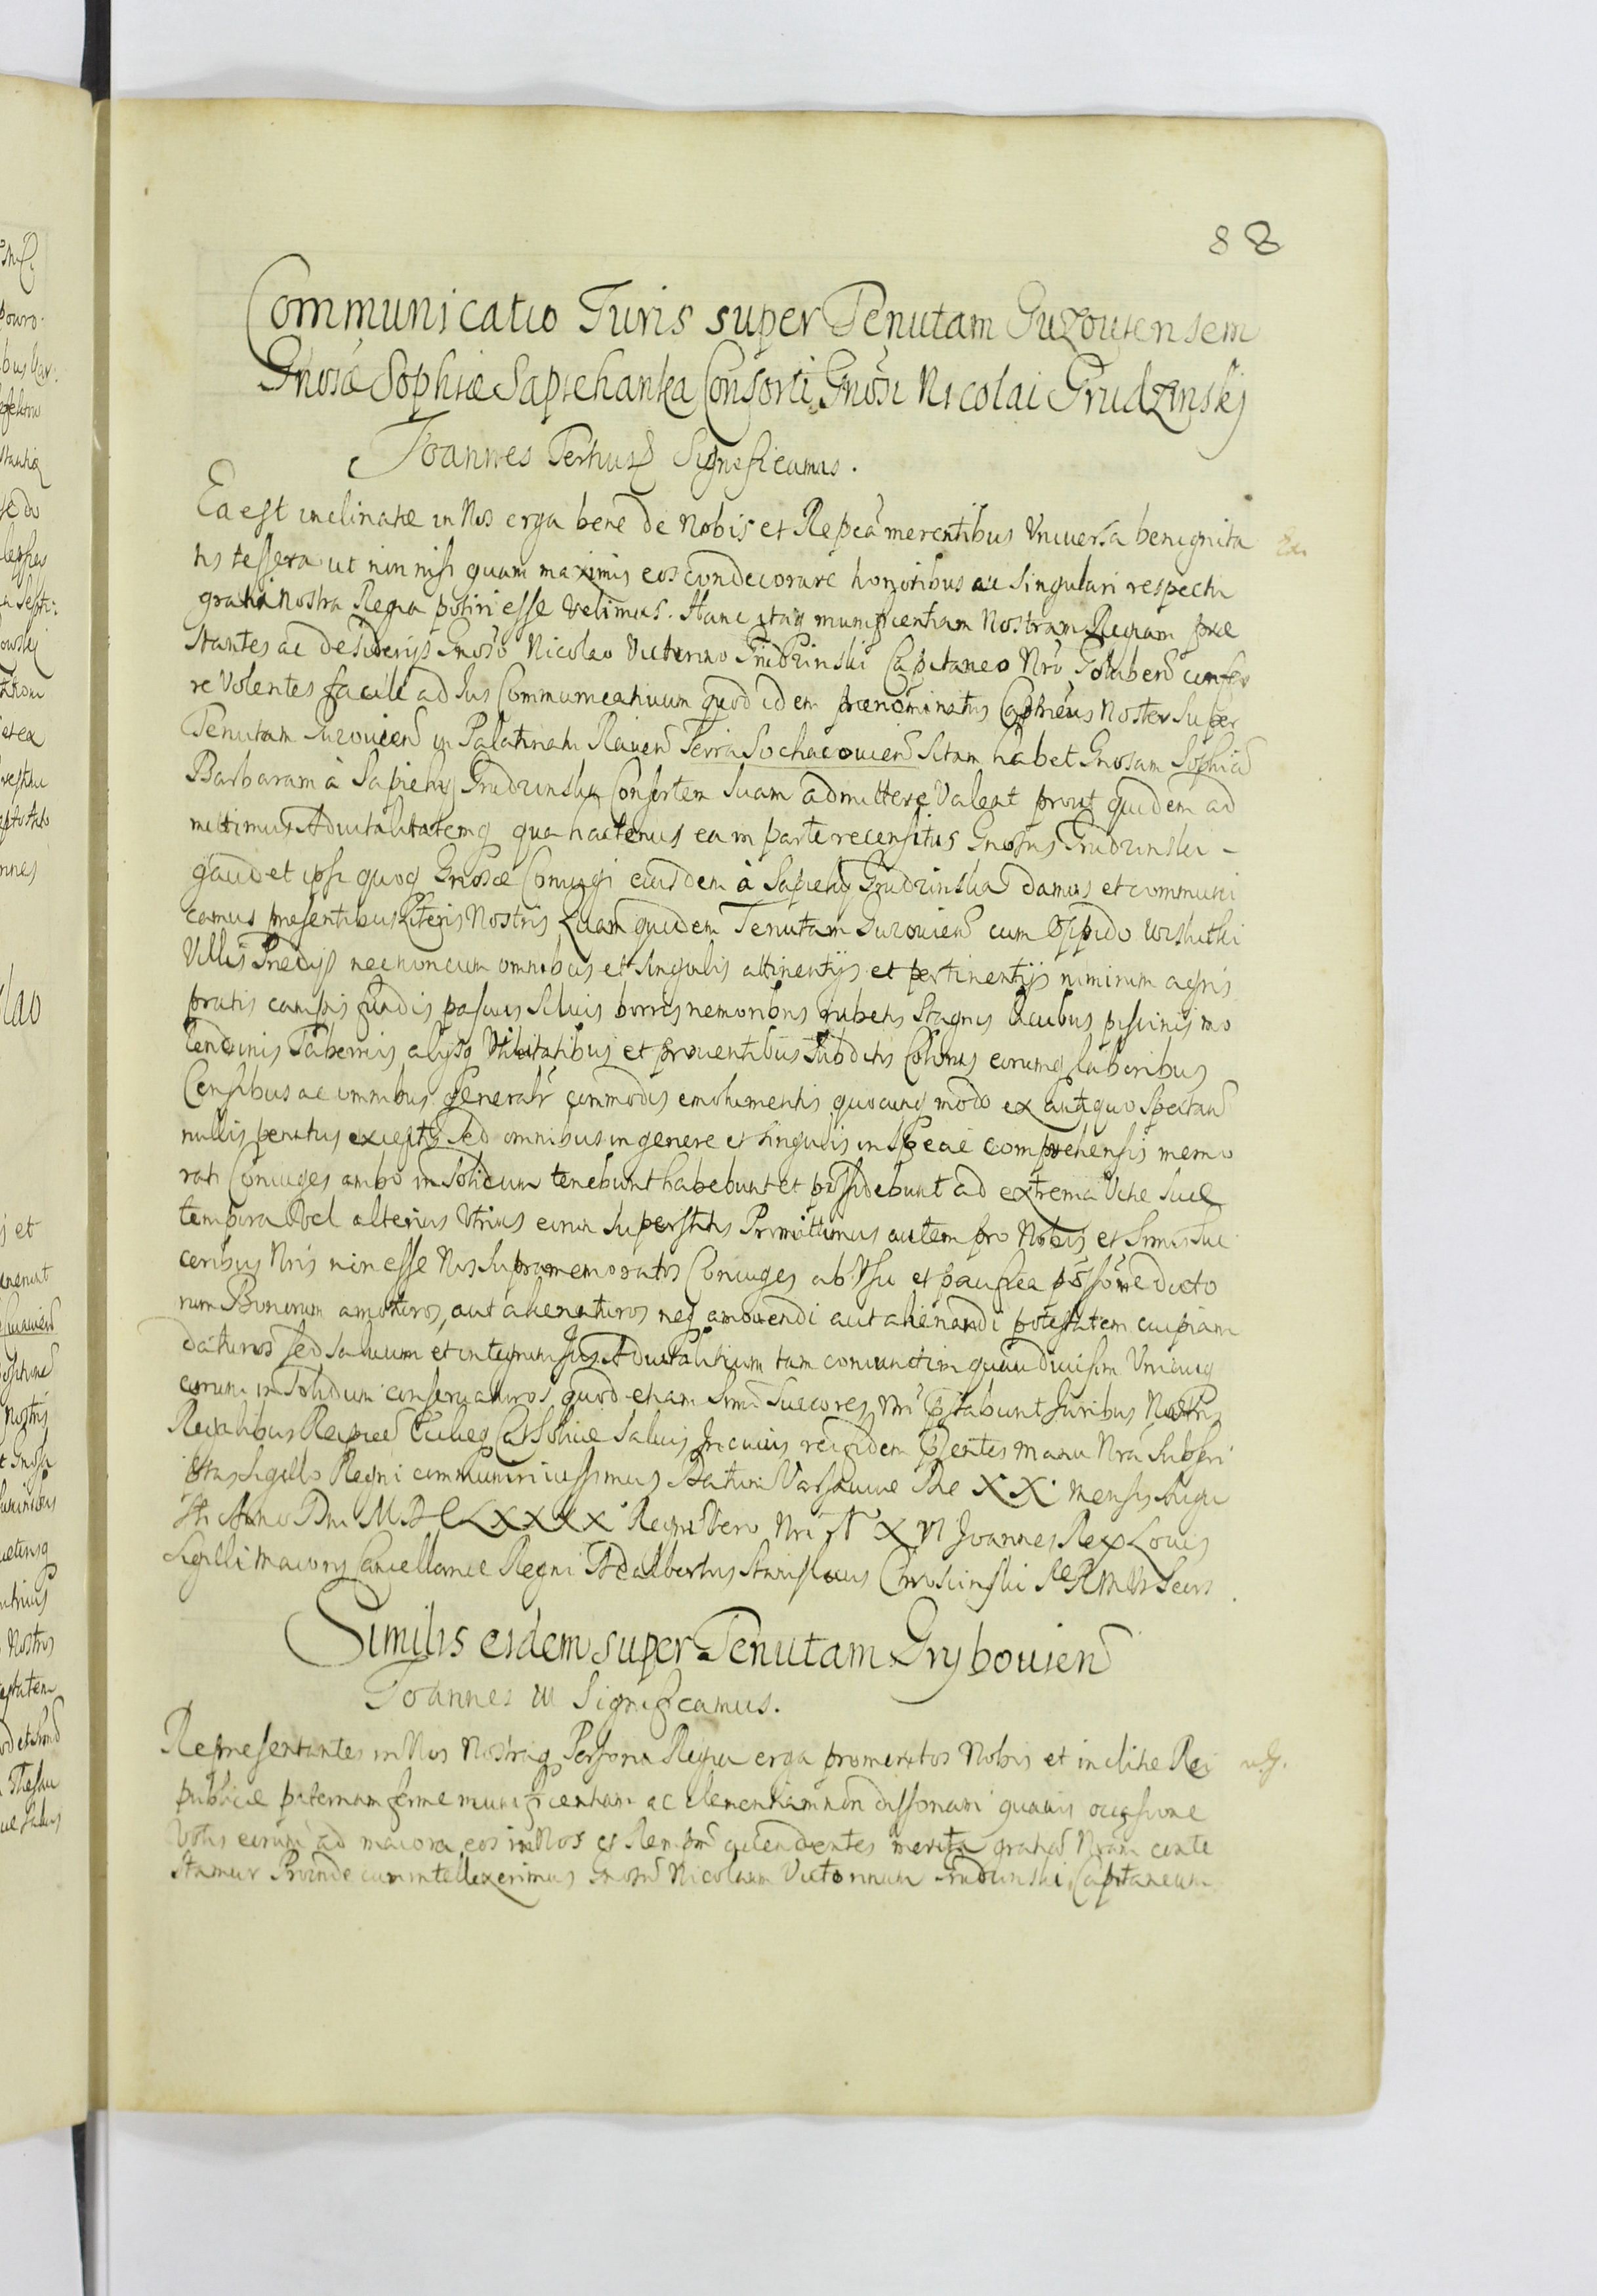 88
Communicatio Juris super Tenutam Guzouiensem
Gnosæ Sophiæ Sapiehanka Consorti Gnosi Nicolai Grudzinskj
Joannes Tertius Significamus.
Ea est inclinatæ in Nos erga bene de Nobis et Repca merentibus Vniuersa benignita
tis tessera ut non nisi quam maximis eos condecorare honoribus ac singulari respectu
gratia nostra Regia potiri esse velimus. Hanc itaq munificentiam Nostram Regiam præ
stantes ac desiderijs Gnoso Nicolao Victorino Grudzinski Capitaneo Nro Golubens confer
re Volentes facile ad Jus Communicatiuum quod idem prænominatus Captneus Noster super
Tenutam Guzouien in Palatinatu Rauen Terra Sochacouien sitam habet Gnosam Sophia
Barbaram à Sapiehy Grudzinska Consortem suam admittere Valeat prout quidem ad
mittimus Aduitalitatemq qua hactenus ea in parte recensitus Gnosus Grudzinski -
gaudet ipsi quoq Gnosæ Coniugi eiusdem à Sapiehy Grudzinska damus et communi
camus presentibus literis Nostris Quam quidem Tenutam Guzouien cum Oppido Wiskitki
Villis Predijs necnon cum omnibus et singulis attinentijs et pertinentijs nimirum agris
pratis campis fundis pascuis siluis borris nemoribus rubetis stagnis lacubus piscinis mo
lendinis Tabernis alijsq Vtilitatibus et prouentibus subditis Colonis eorumq laboribus
Censibus ac omnibus generalr commodis emolumentis quocunq modo ex antiquo spectan
nullis penitus exceptis sed omnibus in genere et singulis in specie comprehensis memo
rati Coniuges ambo in solidum tenebunt habebunt et possidebunt ad extrema vitæ suæ
tempora Vel alterius Vtrius eorum superstitis Promittimus autem pro Nobis et Srmis suc
ceribus Nris non esse Nos supramemoratos Coniuges ab Vsu et pacifica possone dicto
rum Bonorum amoturos, aut alienaturos neq amouendi aut alienandi potestatem cuipiam
daturos sed saluum et integrum Jus Aduitalitium tam coniunctim quam diuisim Vnicuiq
eorum in solidum conseruaturos quod etiam Srmi Succores Nri pstabunt Juribus Nostris
Regalibus Reipcæ Ecclieq Catholicæ Saluis In cuius rei fidem psentes manu Nra subscri
ptas sigillo Regni communiri iussimus Datum Varsauiæ Die XX mensis Augu
sti Anno Dni MDCLXXXX Regni Vero Nri Joannes Rex Locus
Sigilli maioris Cancellariæ Regni Adalbertus Stanislaus Chroscinski SRM Secrs
Similis eidem super Tenutam Grybouien
Joannes III Significamus.
Representantes in Nos Nostraq Persona Regia erga promeritos Nobis et inclitæ Rei
publicæ paternam ferme munificentiam ac clementiam non dissonam quauis occasione
Votis eorum ad maiora eos in Nos et Rempm accendentes merita gratia Nram conte
stamur Proinde cum intellexerimus Gnosum Nicolaum Victorinum Grudzinski Capitaneum